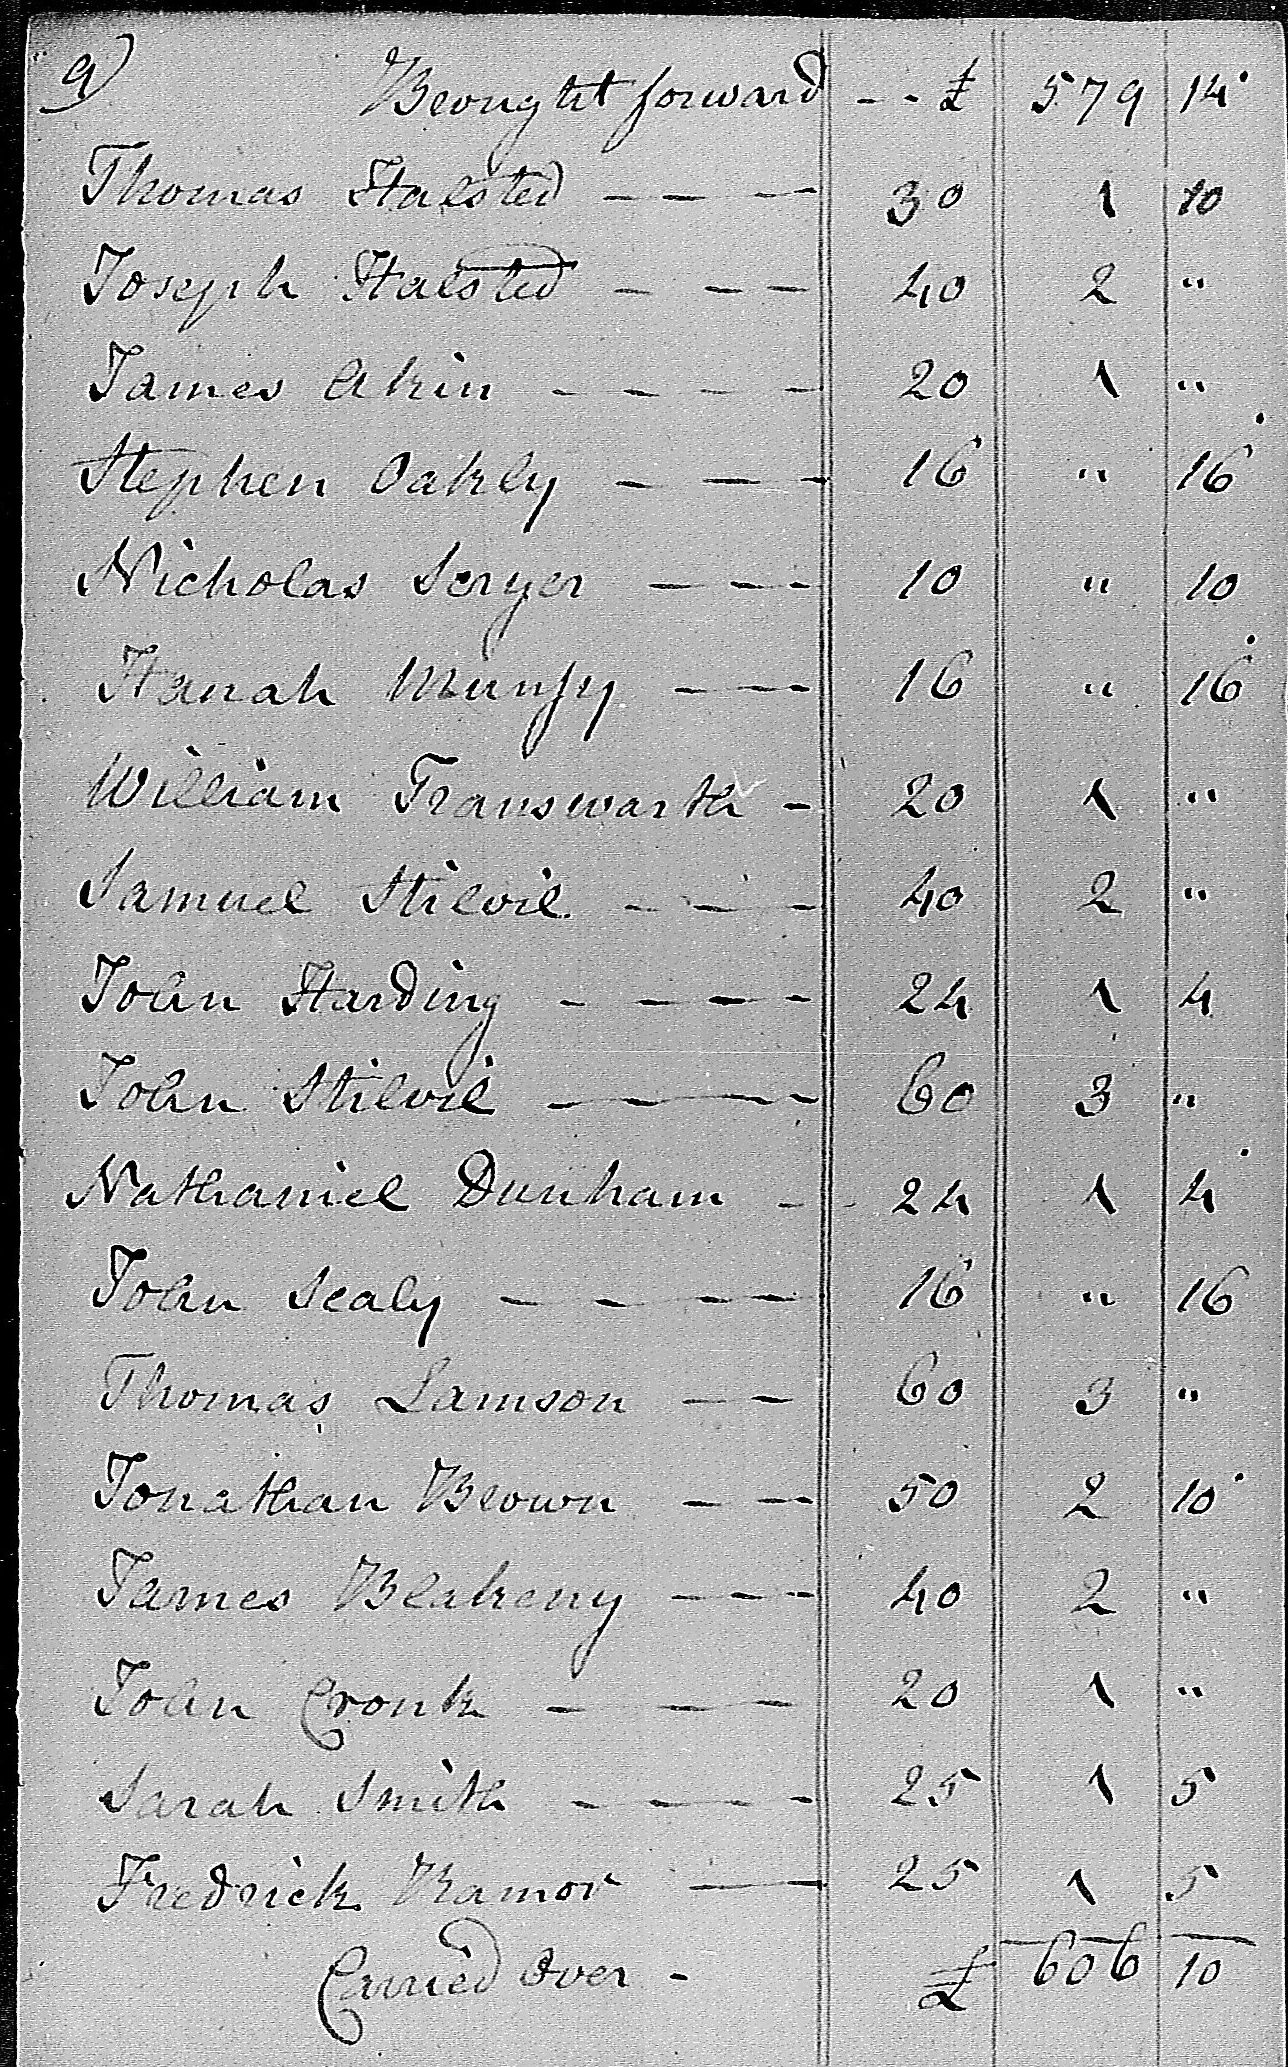 9)
Brought forward - - £ 579 14
Thomas Halsted - - - 30 1 10
Joseph Halsted - - - 40 2 "
James Akin - - - - 20 1 "
Stephen Oakly - - - 16 " 16
Nicholas Seryer - - - 10 " 10
Hanah Munsy - - - 16 " 16
William Transwarth - 20 1 "
Samuel Stilvil - - - 40 2 "
John Harding - - - - 24 1 4
John Stilvil - - - - 60 3 "
Nathaniel Dunham - 24 1 4
John Sealy - - - - 16 " 16
Thomas Lamson - - 60 3 "
Jonathan Brown - - 50 2 10
James Blakeny - - - 40 2 "
John Cronk - - - 20 1 "
Sarah Smith - - - - 25 1 5
Fredrick Ramor - - 25 1 5
Carried Over - £ 606 10